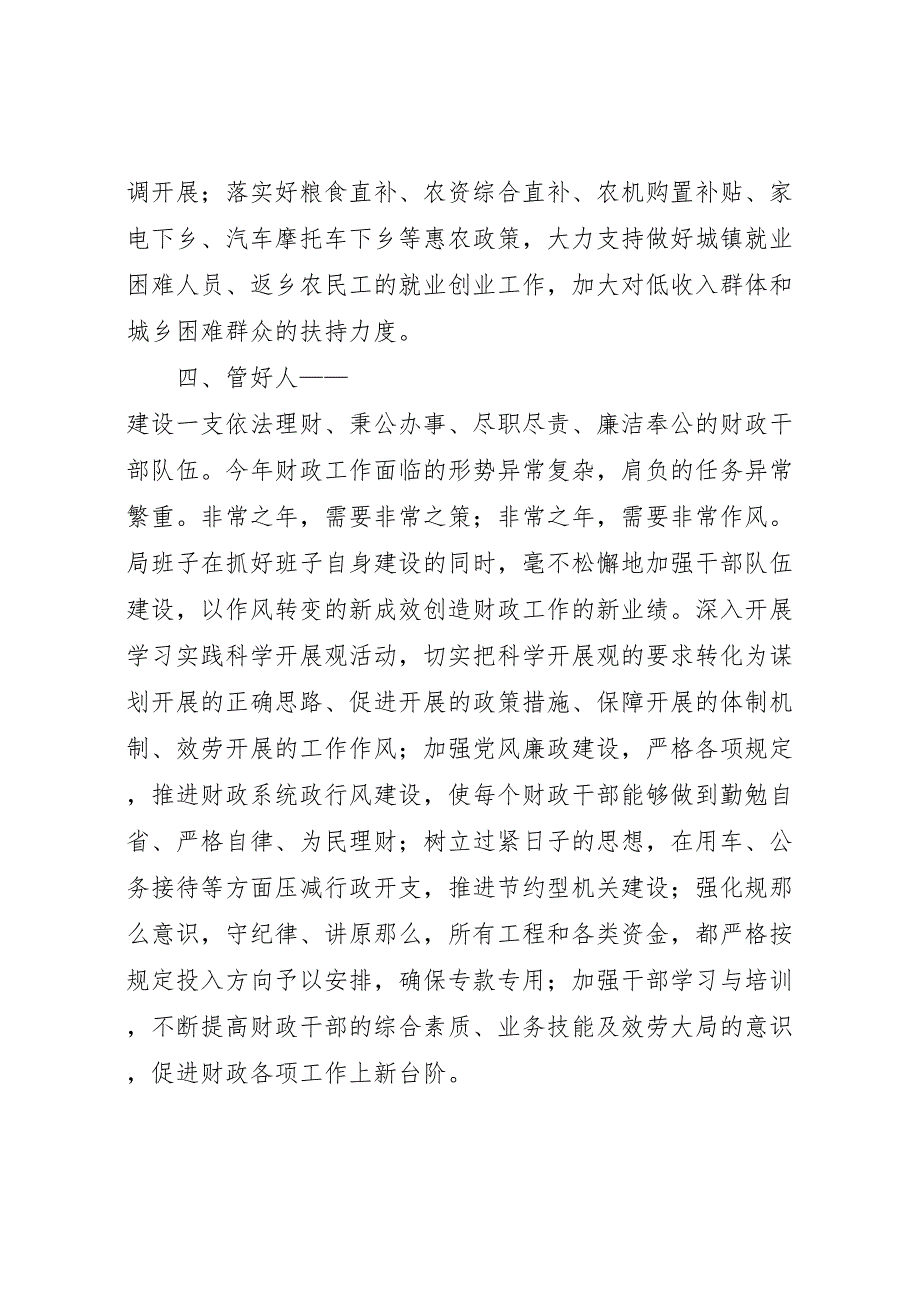 调开展；落实好粮食直补、农资综合直补、农机购置补贴、家
电下乡、汽车摩托车下乡等惠农政策，大力支持做好城镇就业
困难人员、返乡农民工的就业创业工作，加大对低收入群体和
城乡困难群众的扶持力度。
四、管好人——
建设一支依法理财、秉公办事、尽职尽责、廉洁奉公的财政干
部队伍。今年财政工作面临的形势异常复杂，肩负的任务异常
繁重。非常之年，需要非常之策；非常之年，需要非常作风。
局班子在抓好班子自身建设的同时，毫不松懈地加强干部队伍
建设，以作风转变的新成效创造财政工作的新业绩。深入开展
学习实践科学开展观活动，切实把科学开展观的要求转化为谋
划开展的正确思路、促进开展的政策措施、保障开展的体制机
制、效劳开展的工作作风；加强党风廉政建设，严格各项规定
，推进财政系统政行风建设，使每个财政干部能够做到勤勉自
省、严格自律、为民理财；树立过紧日子的思想，在用车、公
务接待等方面压减行政开支，推进节约型机关建设；强化规那
么意识，守纪律、讲原那么，所有工程和各类资金，都严格按
规定投入方向予以安排，确保专款专用；加强干部学习与培训
，不断提高财政干部的综合素质、业务技能及效劳大局的意识
，促进财政各项工作上新台阶。